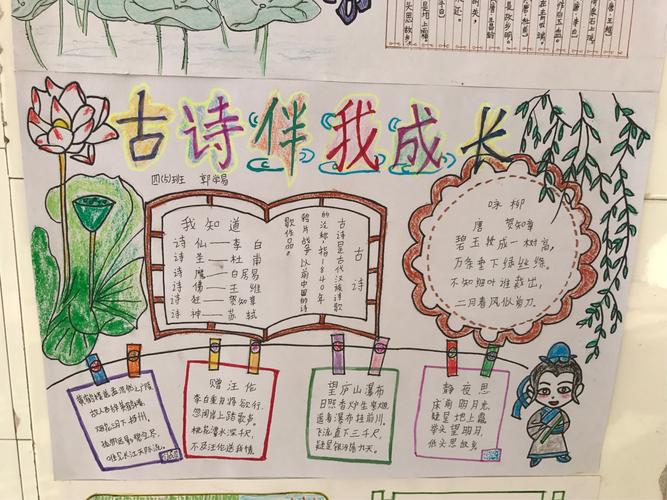 古诗伴我成长
四(5)班 郭学易
我知道
诗仙——李白
诗圣——杜甫
诗魔——白居易
诗佛——王维
诗狂——贺知章
诗神——苏轼
古诗
古诗是古代汉族诗歌
的泛称,指1840年
鸦片战争以前中国的诗
歌作品。
咏柳
唐 贺知章
碧玉妆成一树高,
万条垂下绿丝绦。
不知细叶谁裁出,
二月春风似剪刀。
故人西辞黄鹤楼,
烟花三月下扬州。
孤帆远影碧空尽,
唯见长江天际流。
赠汪伦
李白乘舟将欲行,
忽闻岸上踏歌声。
桃花潭水深千尺,
不及汪伦送我情。
望庐山瀑布
日照香炉生紫烟,
遥看瀑布挂前川。
飞流直下三千尺,
疑是银河落九天。
静夜思
床前明月光,
疑是地上霜。
举头望明月,
低头思故乡。